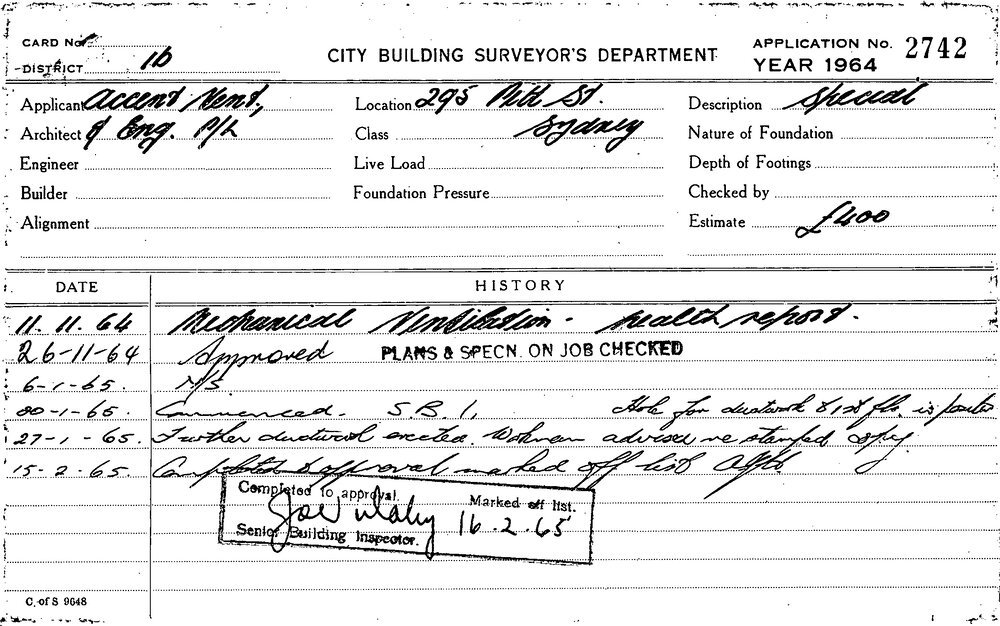 CARD No. CITY BUILDING SURVEYOR'S DEPARTMENT APPLICATION No. 2742
DISTRICT 1D YEAR 1964
Applicant Accent Vent, Location 295 Pitt St. Description Special
Architect & Eng. P/L Class Sydney Nature of Foundation
Engineer Live Load Depth of Footings
Builder Foundation Pressure Checked by
Alignment Estimate £400
DATE HISTORY
11.11.64 Mechanical Ventilation - health report.
26-11-64 Approved PLANS & SPECN. ON JOB CHECKED
6-1-65. N/S
20-1-65. Commenced. S.B.1. Hole for ductwork 81st flr. is
27-1-65. Further ductwork erected. Workman advised re stamped copy
15-2-65. Completed to approval marked off list
Completed to approval. Marked off list.
16.2.65
Senior Building Inspector.
C. of S 9648